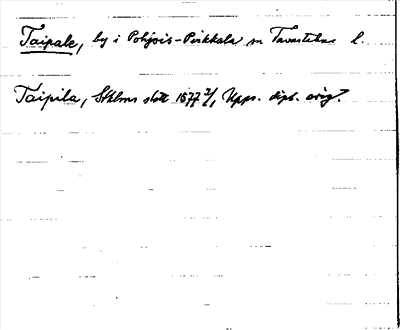 Taipale, by i Pohjois-Pirkkala sn Tavastehus l.
Taipila, Sthlms slott 1577 2/1, Upps. dipl. orig.